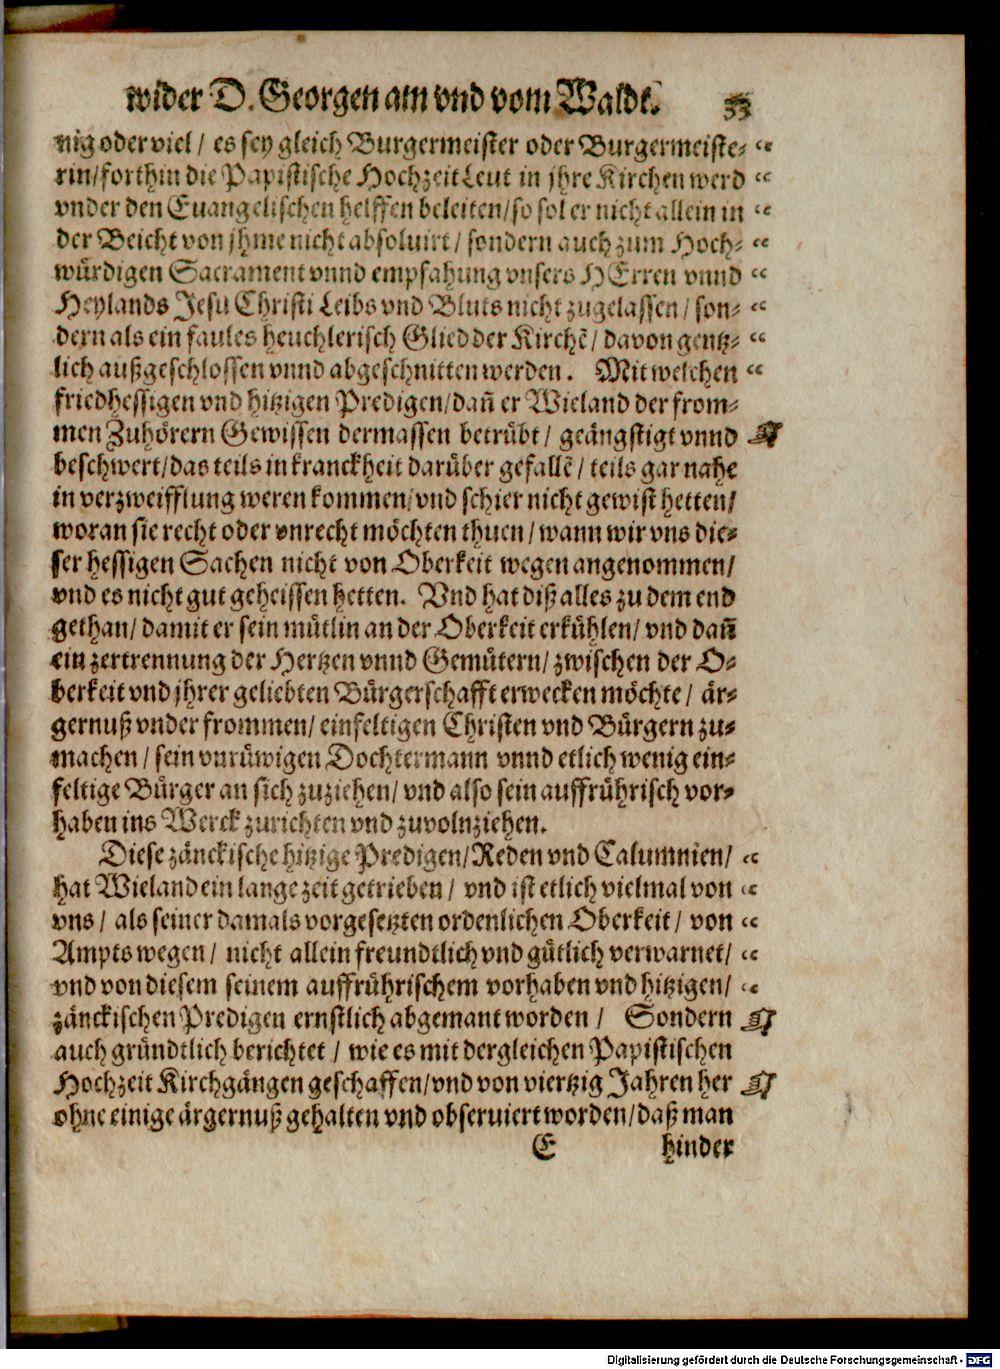 wider D. Georgen am vnd vom Waldt. 33
nig oder viel / es sey gleich Burgermeister oder Burgermeiste- “
rin/forthin die Papistische Hochzeit Leut in jhre Kirchen werd “
vnder den Euangelischen helffen beleiten/so sol er nicht allein in “
der Beicht von jhme nicht absoluirt / sondern auch zum Hoch- “
würdigen Sacrament vnnd empfahung vnsers HErren vnnd “
Heylands Jesu Christi Leibs vnd Bluts nicht zugelassen / son- “
dern als ein faules heuchlerisch Glied der Kirchẽ / davon gentz- “
lich außgeschlossen vnnd abgeschnitten werden. Mit welchen “
friedhessigen vnd hitzigen Predigen/dañ er Wieland der from-
men Zuhörern Gewissen dermassen betrübt / geängstigt vnnd
beschwert/das teils in kranckheit darüber gefallẽ / teils gar nahe
in verzweifflung weren kommen/vnd schier nicht gewist hetten/
woran sie recht oder vnrecht möchten thuen / wann wir vns die-
ser hessigen Sachen nicht von Oberkeit wegen angenommen/
vnd es nicht gut geheissen hetten. Vnd hat diß alles zu dem end
gethan/ damit er sein mütlin an der Oberkeit erkühlen/ vnd dañ
ein zertrennung der Hertzen vnnd Gemütern/ zwischen der O-
berkeit vnd jhrer geliebten Bürgerschafft erwecken möchte / är-
gernuß vnder frommen/ einfeltigen Christen vnd Bürgern zu-
machen / sein vnrüwigen Dochtermann vnnd etlich wenig ein-
feltige Bürger an sich zuziehen/ vnd also sein auffrührisch vor-
haben ins Werck zurichten vnd zuvolnziehen.
Diese zänckische hitzige Predigen/Reden vnd Calumnien/ “
hat Wieland ein lange zeit getrieben / vnd ist etlich vielmal von “
vns / als seiner damals vorgesetzten ordenlichen Oberkeit / von “
Ampts wegen / nicht allein freundtlich vnd gütlich verwarnet/ “
vnd von diesem seinem auffrührischem vorhaben vnd hitzigen/ “
zänckischen Predigen ernstlich abgemant worden / Sondern
auch gründtlich berichtet / wie es mit dergleichen Papistischen
Hochzeit Kirchgängen geschaffen/vnd von viertzig Jahren her
ohne einige ärgernuß gehalten vnd obseruiert worden/daß man
E hinder
Digitalisierung gefördert durch die Deutsche Forschungsgemeinschaft - DFG